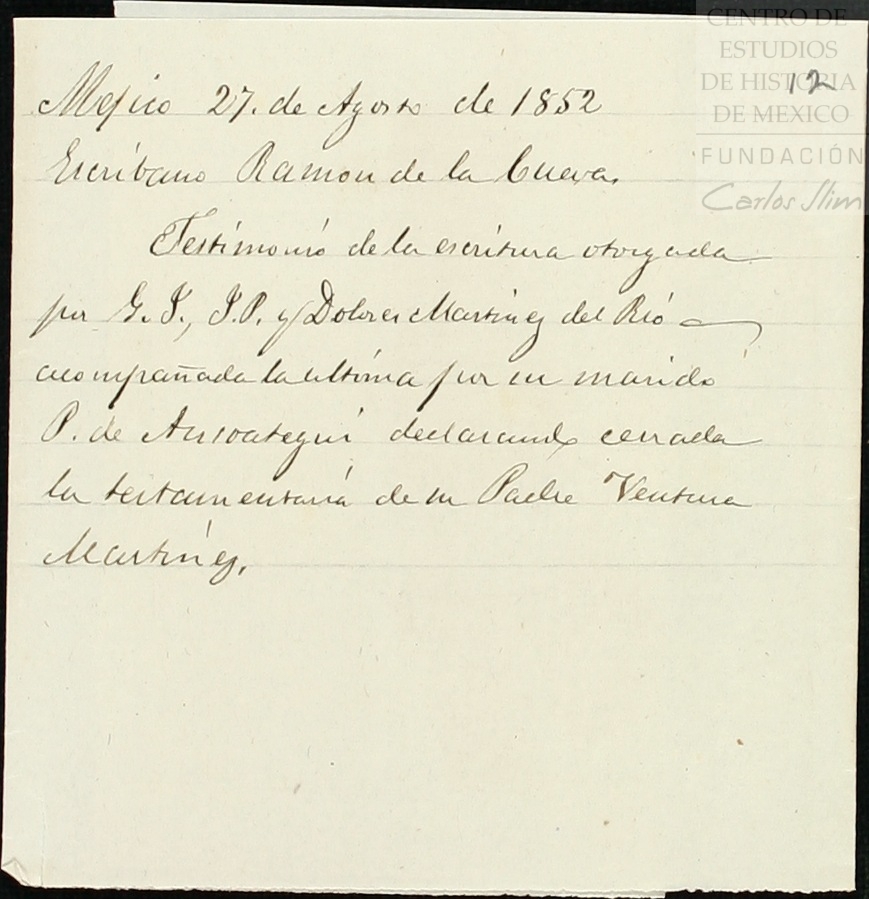 CENTRO DE
ESTUDIOS
DE HISTORIA
DE MEXICO
FUNDACIÓN
Carlos Slim
12
Mejico 27. de Agosto de 1852
Escribano Ramon de la Cueva.
Testimonio de la escritura otorgada
por G. J., J. P. y Dolores Martinez del Rió
acompañada la ultima por su marido
P. de Ansoategui declarando cerrada
la testamentaria de su Padre Ventura
Martinez.